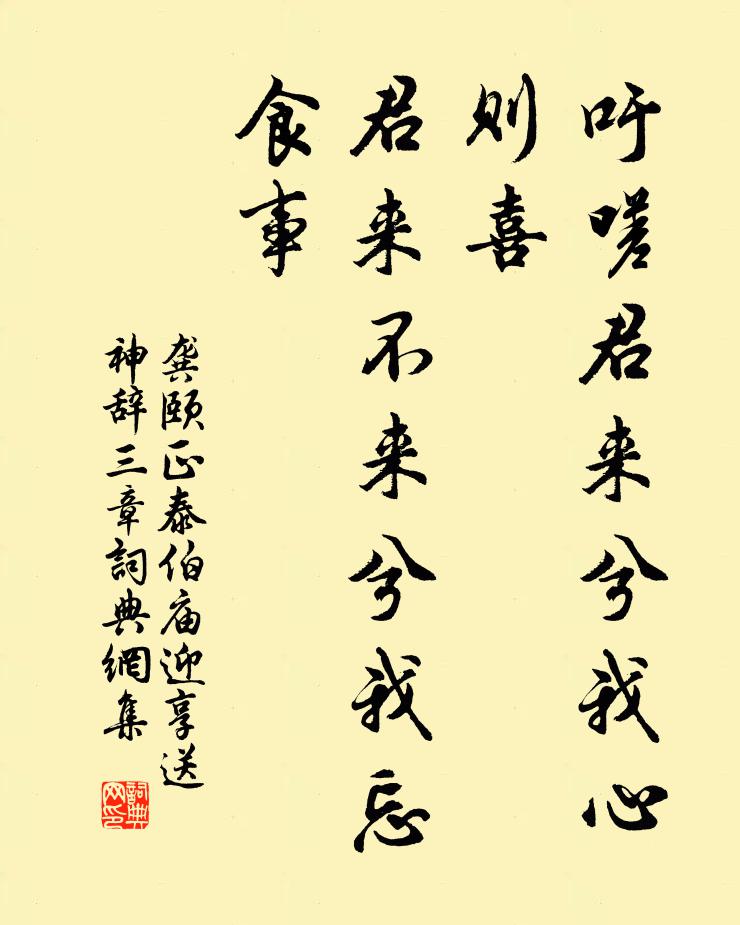 吁嗟君来兮我心
则喜
君来不来兮我忘
食事
龚颐正泰伯庙迎享送
神辞三章詞典網集
詞典
网印